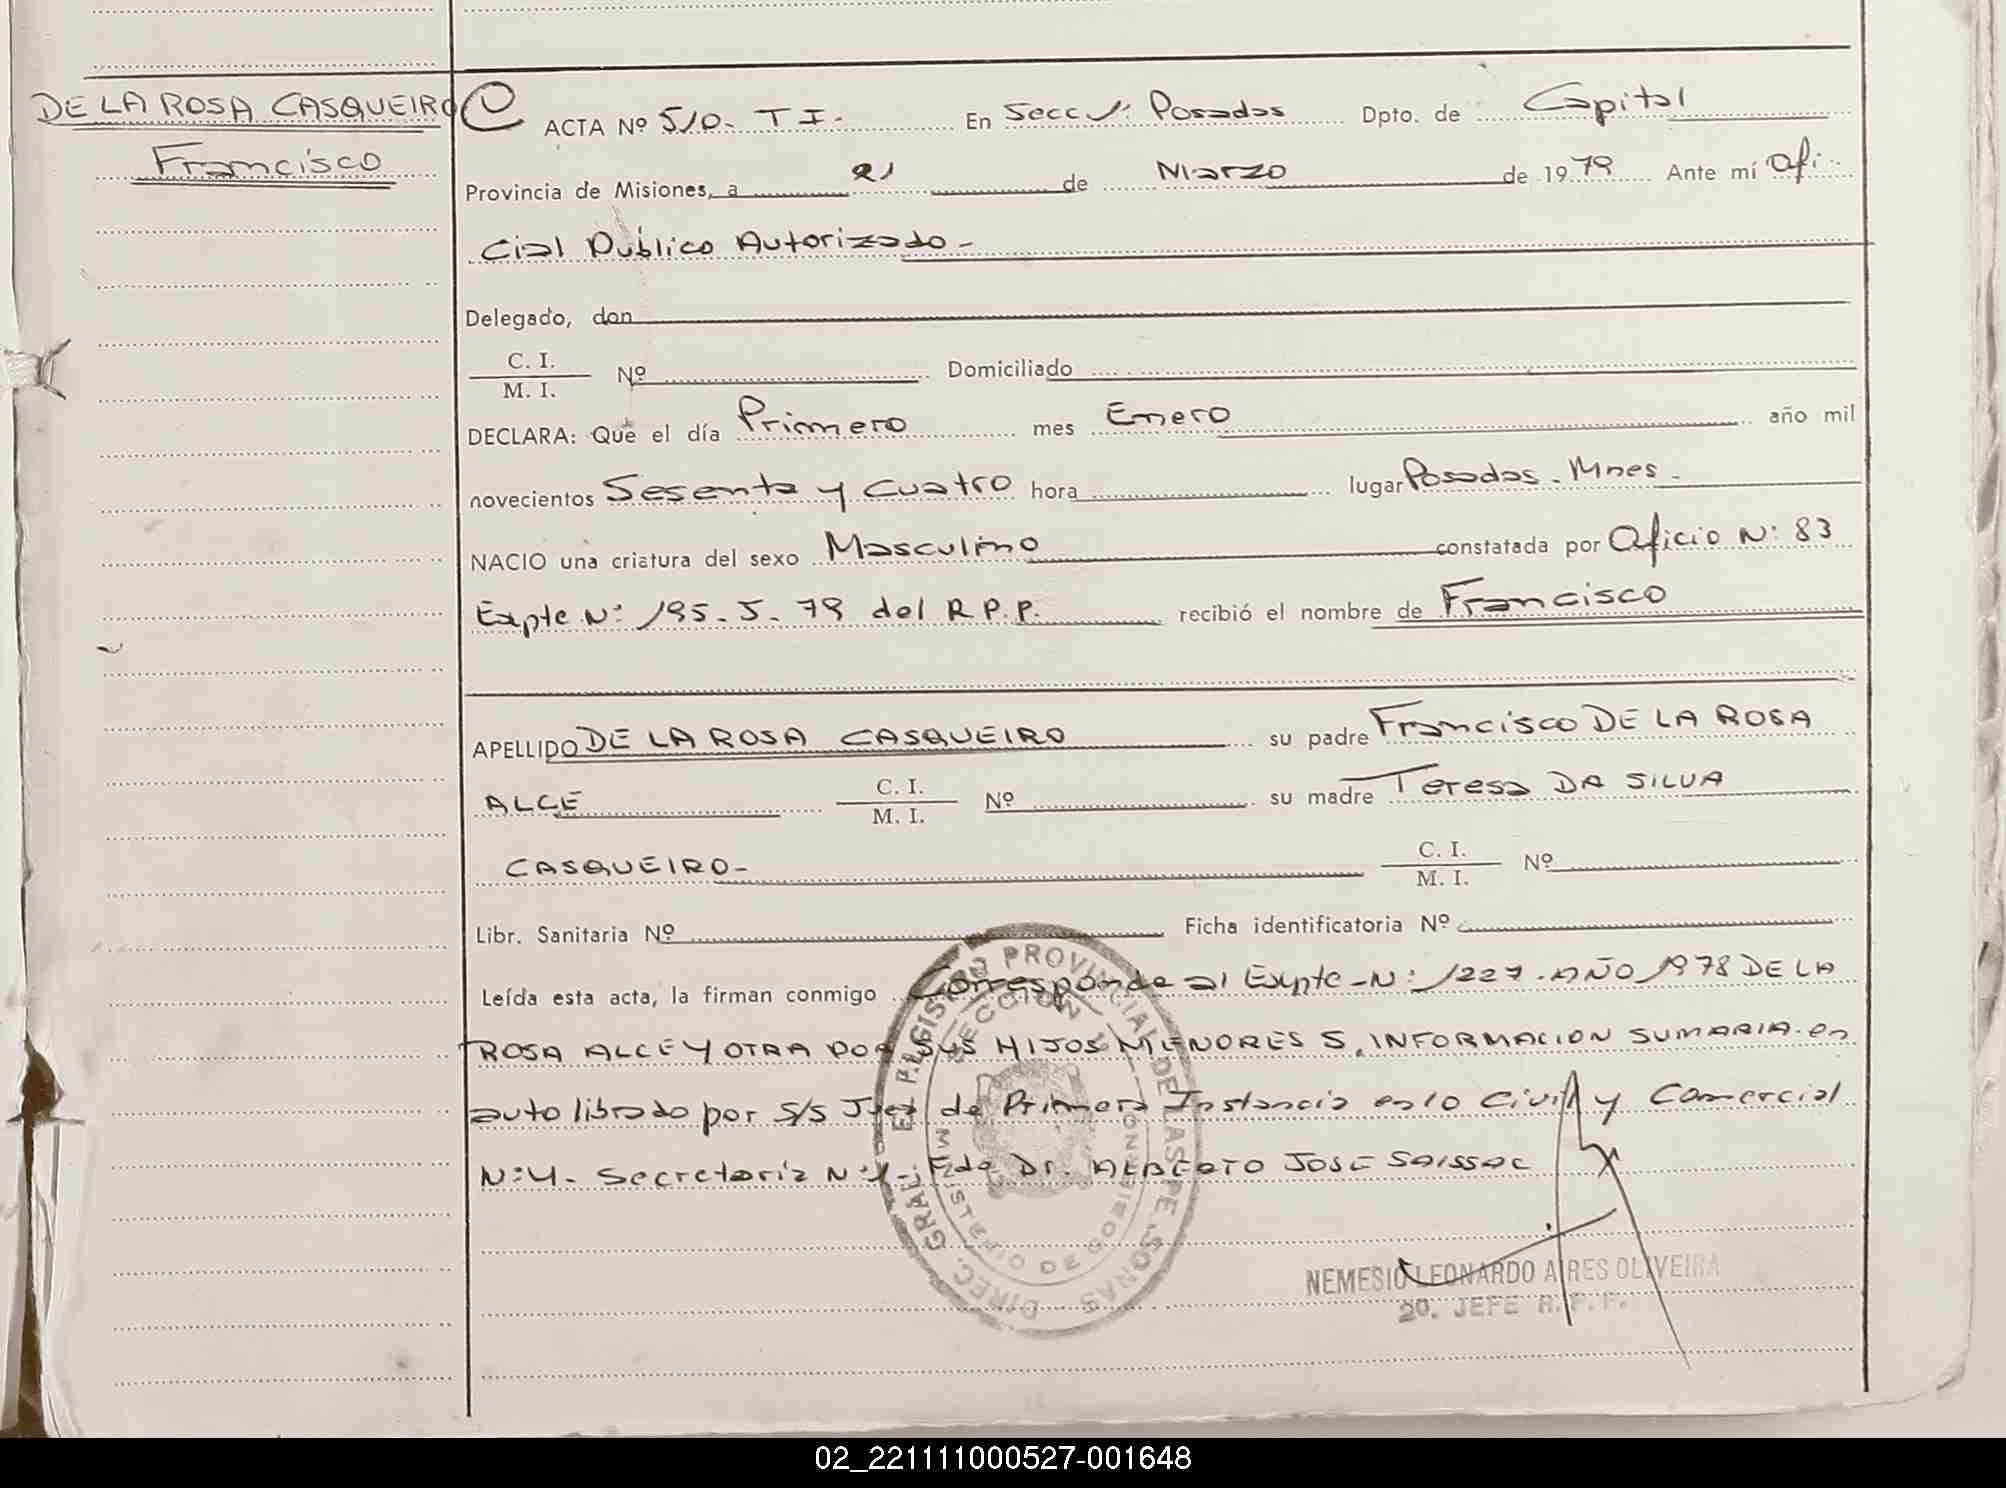 DE LA ROSA CASQUEIRO
Francisco
ACTA Nº 510- T I- En Secc 1: Posadas Dpto. de Capital
Provincia de Misiones, a 21 de Marzo de 1979 Ante mí Ofi
cial Publico Autorizado-
Delegado, don
C. I.
M. I.
Nº Domiciliado
DECLARA: Que el día Primero mes Enero año mil
novecientos Sesenta y cuatro hora lugar Posadas. Mnes.
NACIO una criatura del sexo Masculino constatada por Oficio N: 83
Expte N: 195-J-79 del R.P.P. recibió el nombre de Francisco
APELLIDO DE LA ROSA CASQUEIRO su padre Francisco DE LA ROSA
ALCE C. I. M. I. Nº su madre Teresa DA SILVA
CASQUEIRO- C. I. M. I. Nº
Libr. Sanitaria Nº Ficha identificatoria Nº
Leída esta acta, la firman conmigo Corresponde al Expte-N: 1227-AÑO 1978 DE LA
ROSA ALCE Y OTRA POR SUS HIJOS MENORES S. INFORMACION SUMARIA. en
auto librado por S/S Juez de Primera Instancia en lo Civil y Comercial
N:4- Secretaria N: Fdo Dr. ALBERTO JOSE SAISSAC
DIREC. GRAL. REGISTRO PROVINCIAL DE LAS PERSONAS
SECCION 1
MINISTERIO DE GOBIERNO
NEMESIO LEONARDO AIRES OLIVEIRA
2o. JEFE R.P.P.
02_221111000527-001648